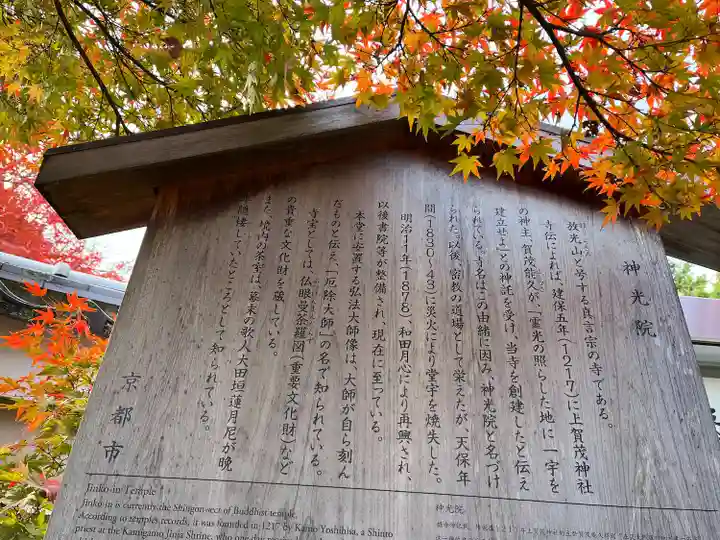 神光院
放光山と号する真言宗の寺である。
寺伝によれば、建保五年(1217)に上賀茂神社
の神主、賀茂能久が、「霊光の照らした地に一宇を
建立せよ」との神託を受け、当寺を創建したと伝え
られている。寺名はこの由緒に因み、神光院と名づけ
られた。以後、密教の道場として栄えたが、天保年
間(1830~43)に災火により堂宇を焼失した。
明治11年(1878)、和田月心により再興され、
以後書院等が整備され、現在に至っている。
本堂に安置する弘法大師像は、大師が自ら刻ん
だものと伝え、「厄除大師」の名で知られている。
寺宝としては、仏眼曼荼羅図(重要文化財)など
の貴重な文化財を蔵している。
また、境内の茶室は、幕末の歌人大田垣蓮月尼が晩
隠棲していたところとして知られている。
京都市
Jinko-in Temple
Jinko-in is currently the Shingon sect of Buddhist temple.
According to temples records, it was founded in 1217 by Kamo Yoshihisa, a Shinto
priest at the Kamigamo Jinja Shrine, who one day
神光院